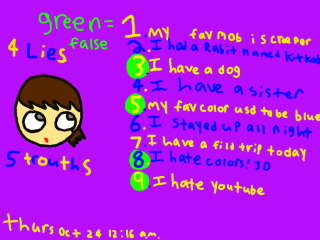 green = false
4 Lies
5 trouths
1 my fav mob is creeper
2. I had a Rabit named kitkat
3. I have a dog
4. I have a sister
5. my fav color usd to be blue
6. I stayed up all night
7. I have a fild trip today
8. I hate colors! 30
9. I hate youtube
thurs Oct 24 12:16 a.m.